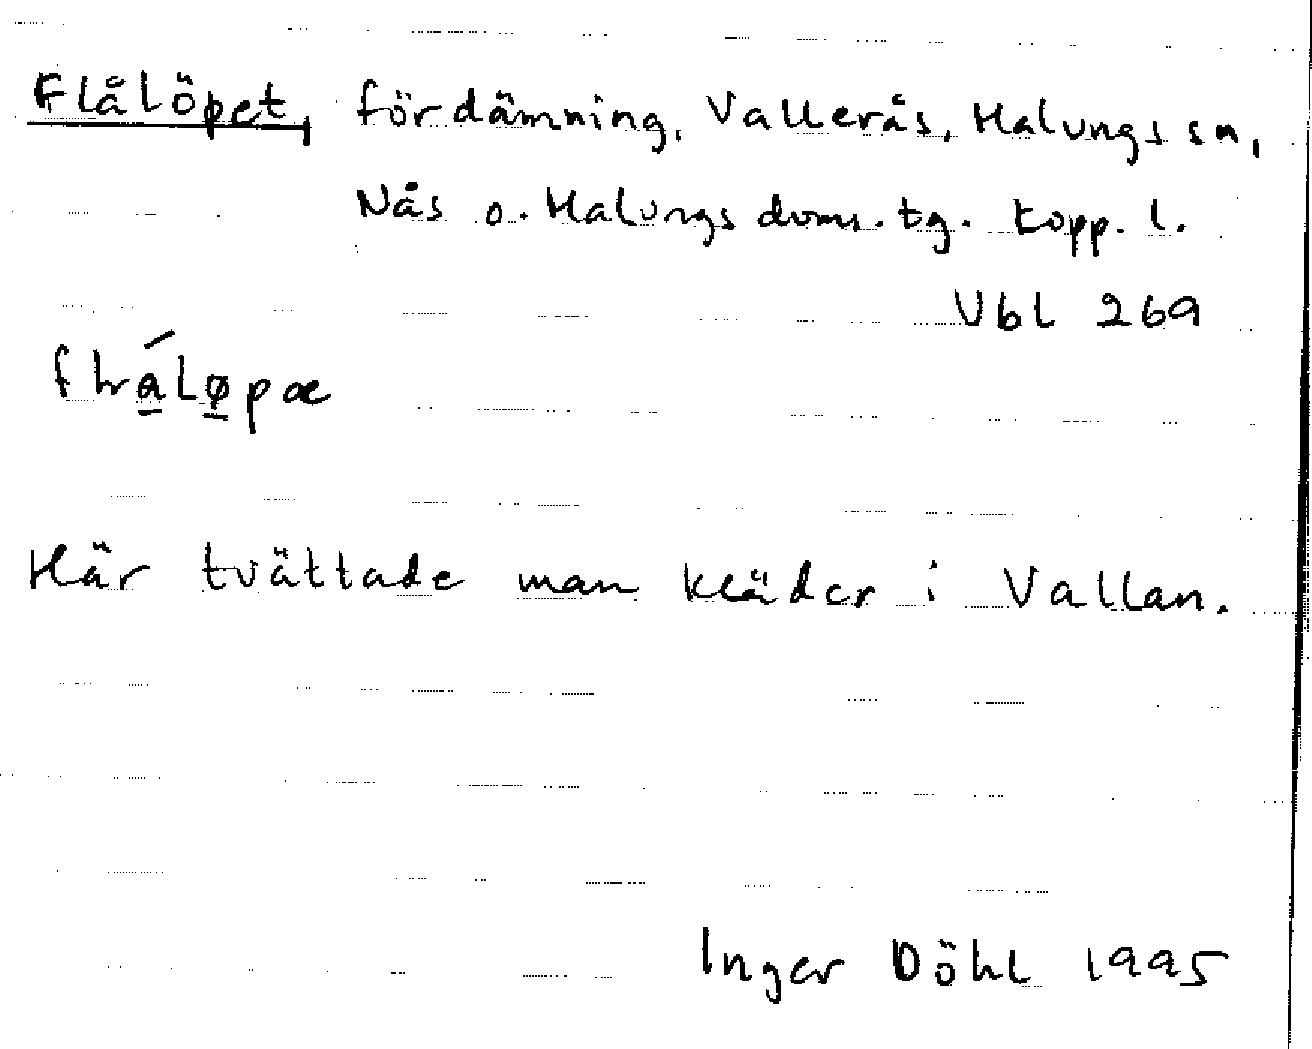 Flålöpet, fördämning, Vallerås, Malungs sn,
Nås o. Malungs doms.tg. Kopp. l.
Vbl 269
Här tvättade man kläder i Vallan.
Inger Döhl 1995